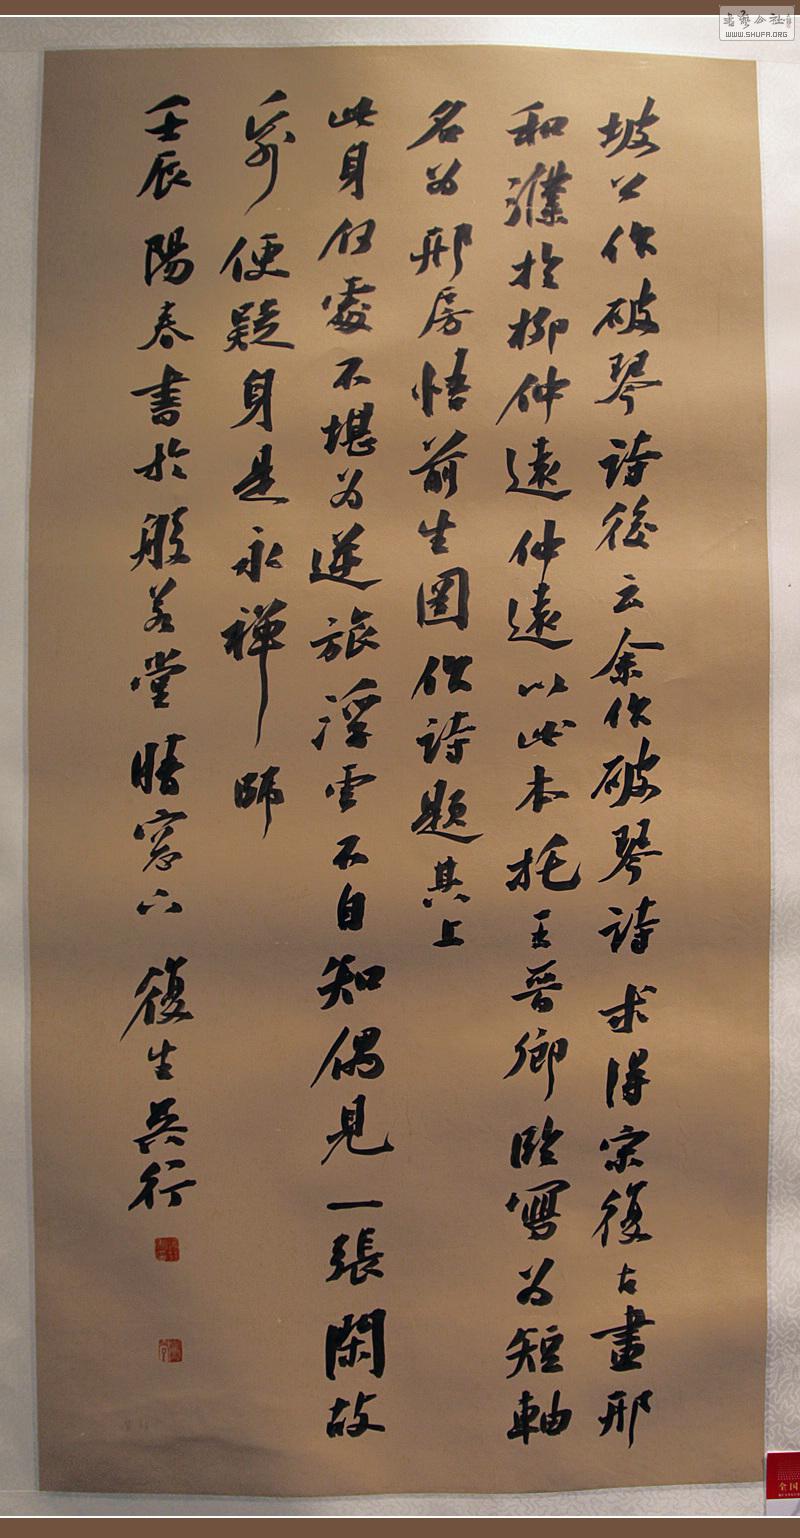 坡公作破琴詩後云余作破琴詩求得宗復古畫邢
和濮於柳仲遠仲遠以此本托王晉卿臨寫為短軸
名為邢房悟前生圖作詩題其上
此身何處不堪為逆旅浮雲不自知偶見一張閑故
帋便疑身是永禪師
壬辰陽春書於般若堂晴窓下 復生吳行
書藝公社
WWW.SHUFA.ORG
全国